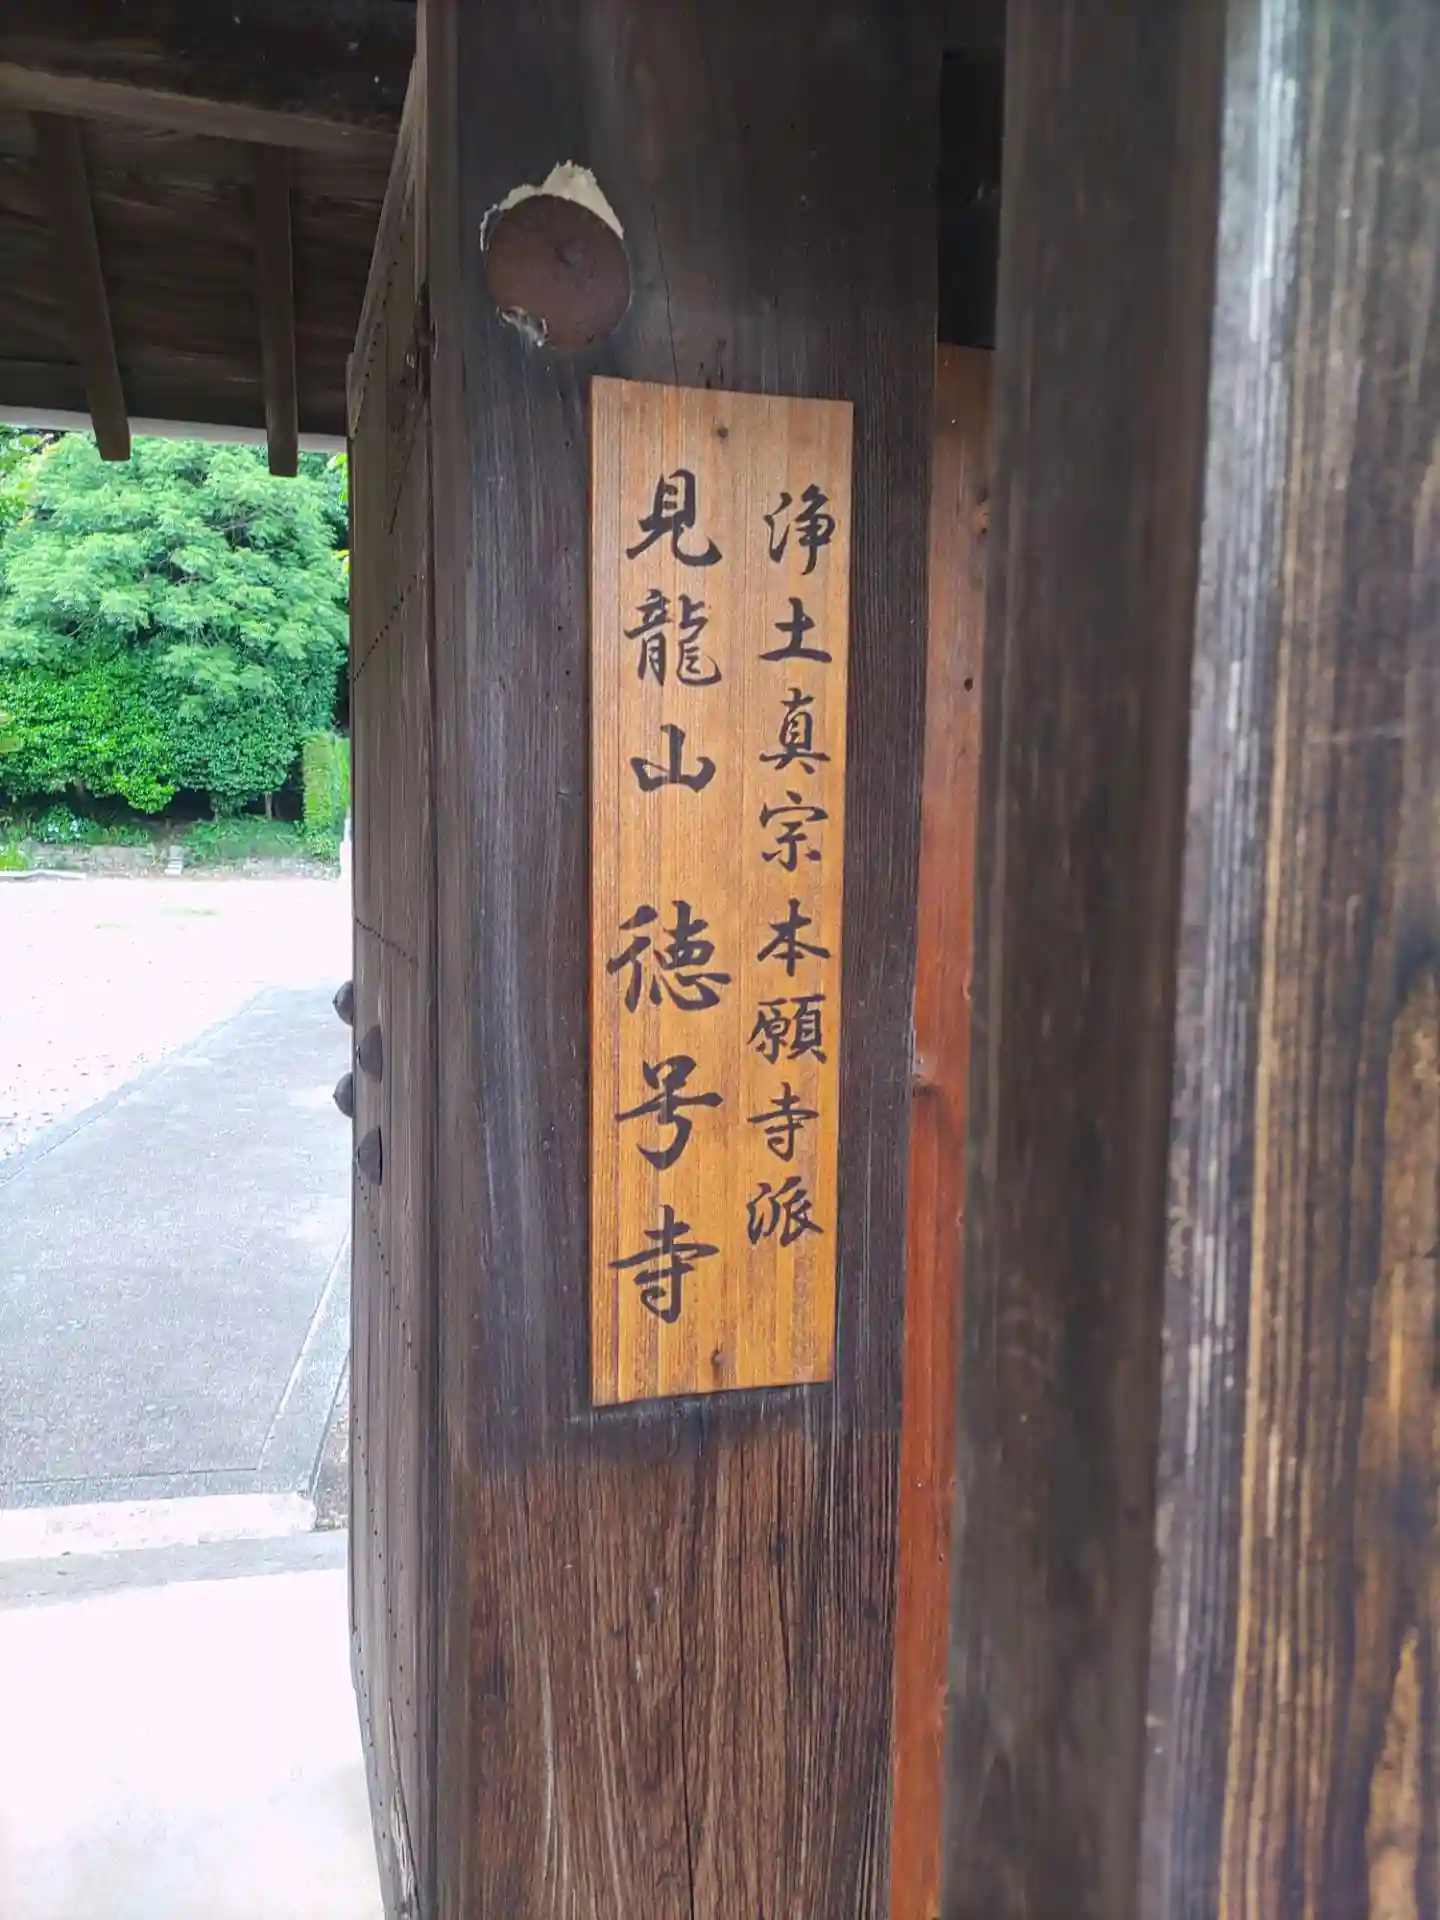 浄土真宗本願寺派
見龍山 徳号寺